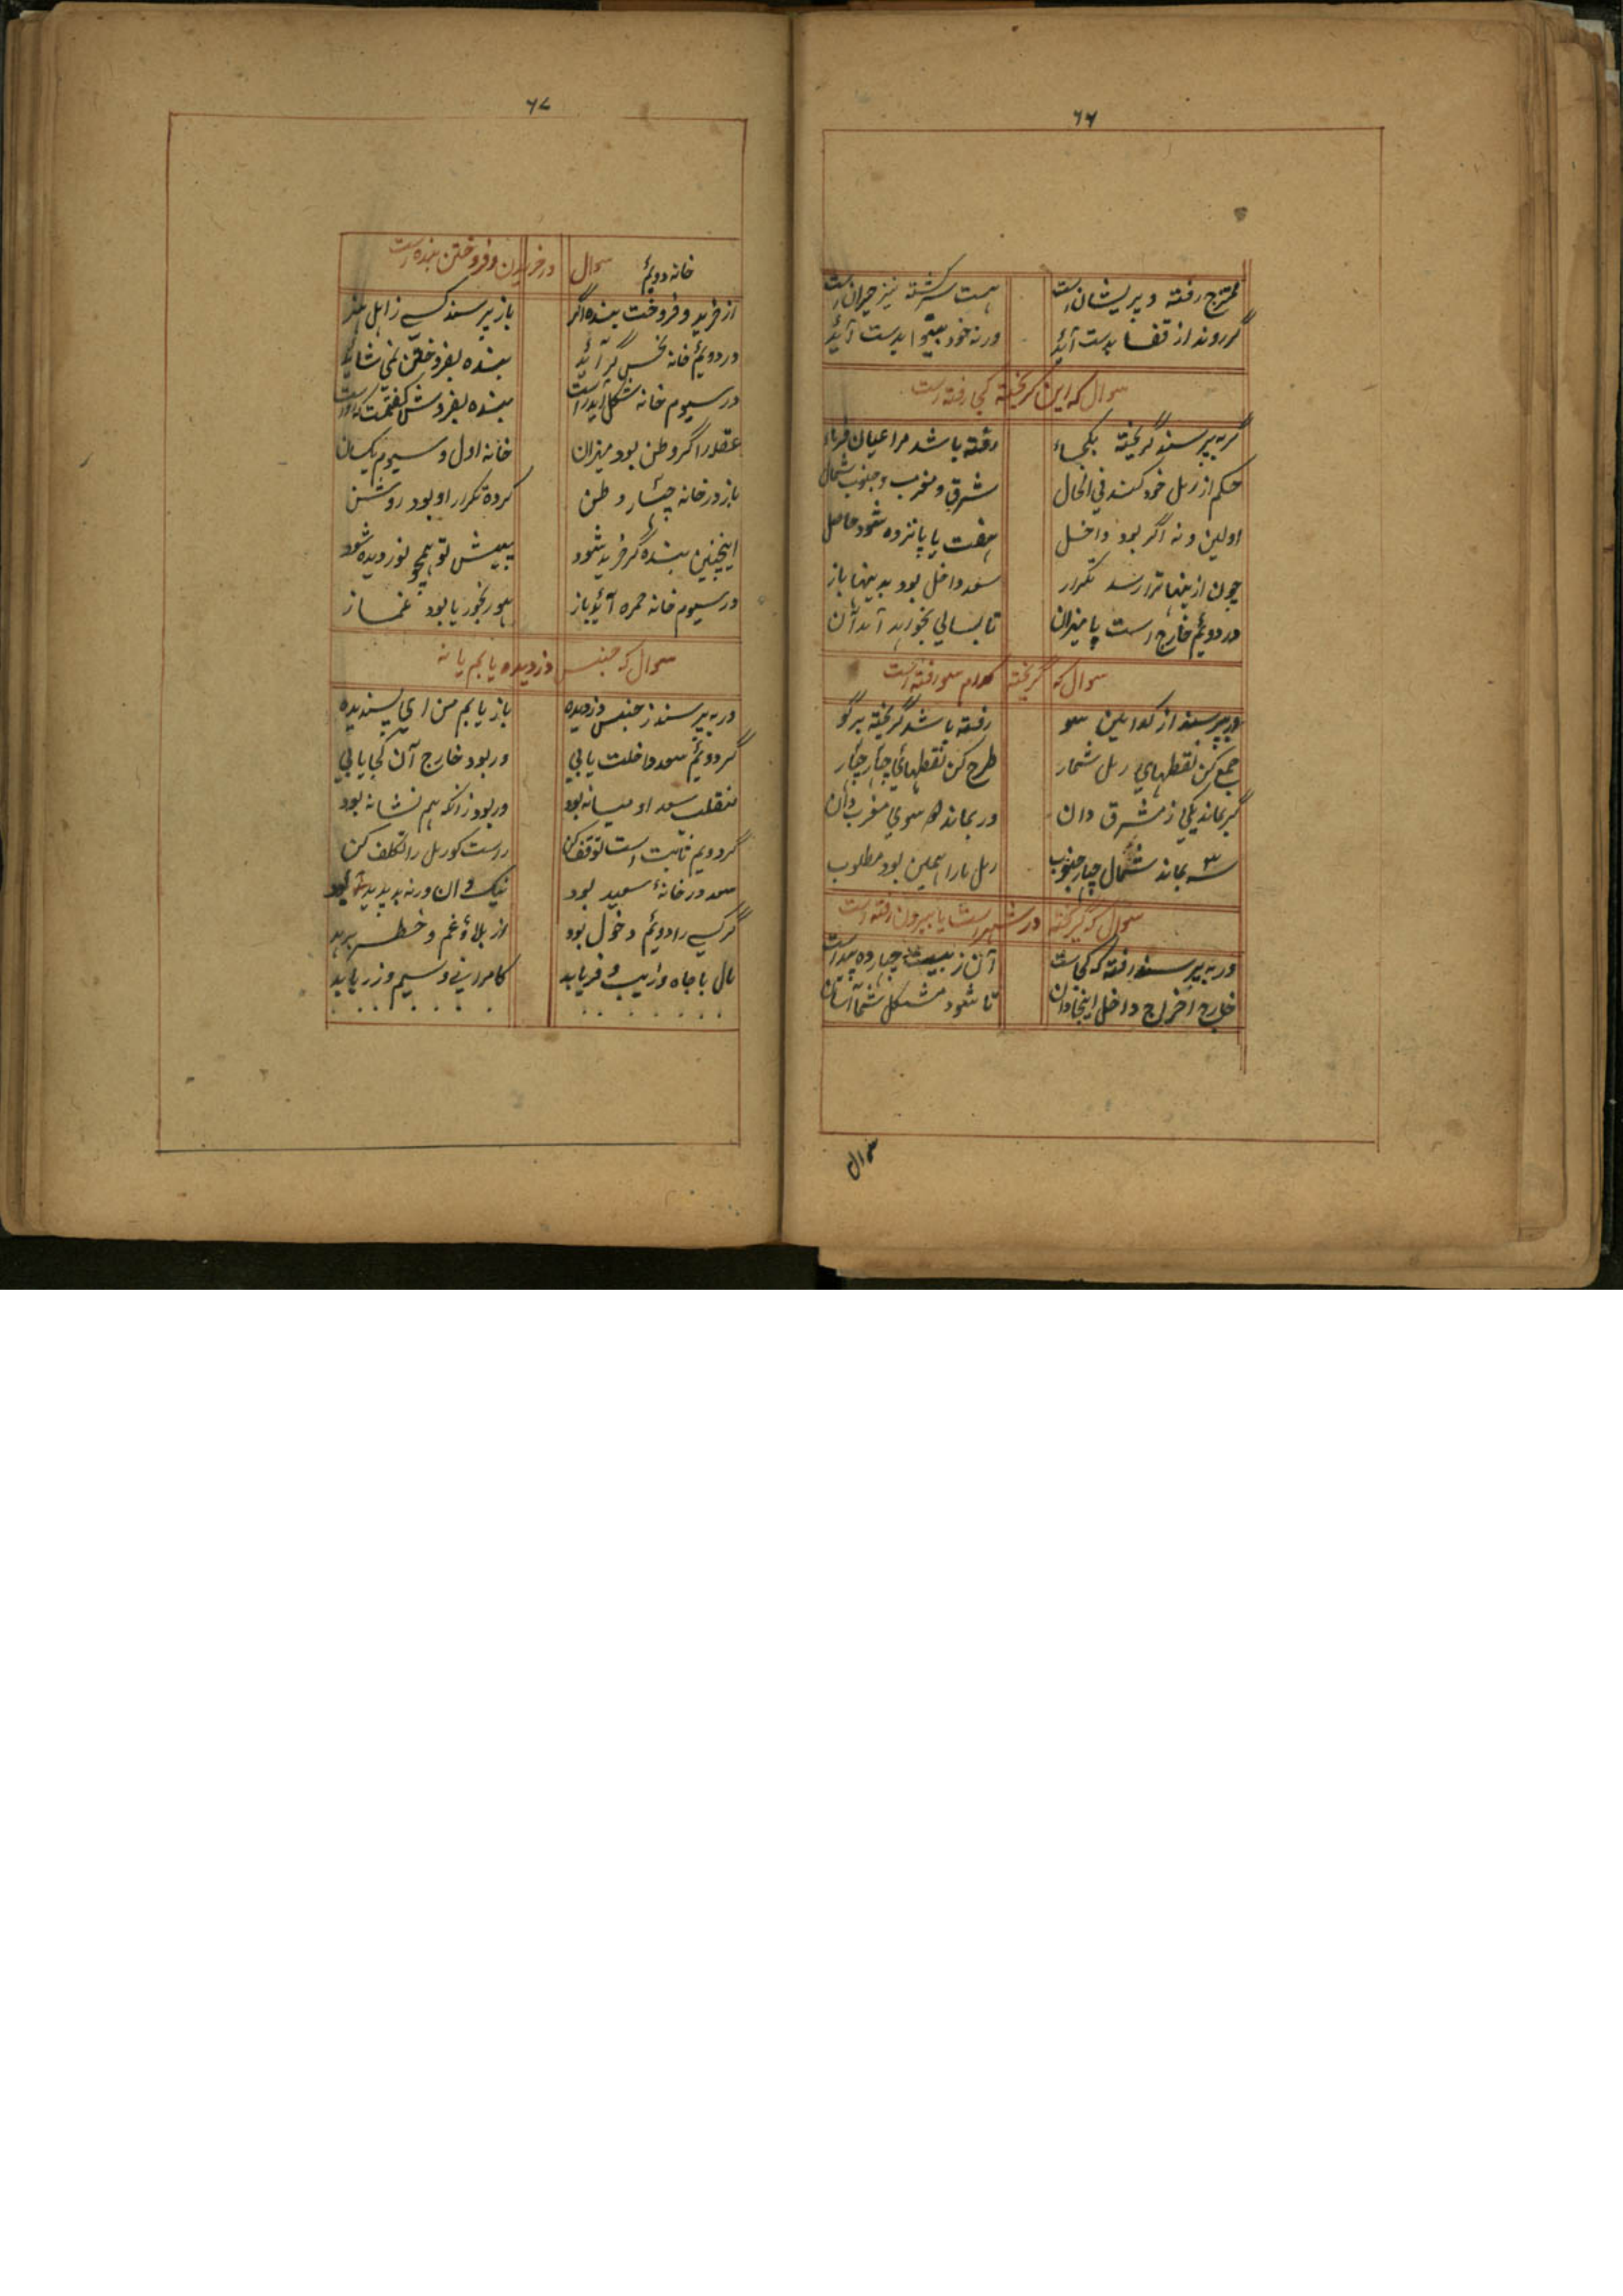 ۶۶
ممتزج رفته و پریشان است هست سرگشته نیز حیران است
گر روند از قفا بدست آید ورنه خود بدست آید
سوال که این گریخته کجا رفته است
گر بپرسند گریخته بکجاء رفته باشد مرا عیان فرماء
حکم از رمل خود کنند فی الحال شرق و مغرب و جنوب شمال
اولین و نه اگر بود داخل هفت یا پانزده شود حاصل
چون ازینها ترا رسد تکرار سعد داخل بود بدینها باز
در دویم خارج است یا میزان تا بسالی نخواهد آمد آن
سوال که گریخته کدام سو رفته است
ور بپرسند از کدامین سو رفته باشد گریخته برگو
جمع کن نقطهای رمل شمار طرح کن نقطهای چار چار
گر بماند یکی ز مشرق دان ور بماند سوی مغرب دان
سه بماند شمال چار جنوب رمل ما را همین بود مطلوب
سوال که گریخته در شهر است یا بیرون رفته است
ور به پرسند رفته که کجاست آن ز بیت چهارده پیداست
خارج اخراج داخل اینجا دان تا شود مشکل شما آسان
سوال
۶۷
خانه دویم سوال در خریدن و فروختن بنده است
از خرید و فروخت بنده اگر باز پرسند کسے ز اهل هنر
در دویم خانه نحس گر آید بنده بفروختن نمی شاید
در سیوم خانه شکل آید راست بنده بفروش
عقله را گر وطن بود میزان خانه اول و سیوم یکسان
باز در خانه چهار وطن کرده تکرار او بود روشن
اینچنین بنده گر خرید شود پیش تو همچو نور دیده شود
در سیوم خانه حمره آید باز رنجور یا بود غماز
سوال که جنس دزدیده یابم یا نه
ور به پرسند ز جنس دزدیده باز یابم من ای پسندیده
گر دویم سعد داخلت یابی ور بود خارج آن کجا یابی
منقلب سعد او میانه بود ور بود زانکه هم نشانه بود
گر دویم ثابت است توقف کن راست گو رمل را تکلف کن
سعد در خانه سعید بود نیک دان ورنه بد پدید بود
گر کسے را دویم دخول بود از بلا و غم و خطر برهد
مال با جاه و زیب و فر یابد کامرانی و سیم و زر یابد